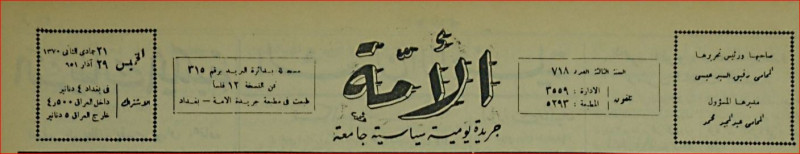 صاحبها ورئيس تحريرها
المحامي رفيق السيد عيسى
مديرها المسؤول
المحامي عبد المجيد محمد
السنة الثالثة العدد ٧١٨
تلفون
الادارة : ٣٥٥٩
المطبعة : ٥٢٩٣
الأمّة
جريدة يومية سياسية جامعة
مسجلة بدائرة البريد برقم ٣١٥
ثمن النسخة ١٢ فلساً
طبعت في مطبعة جريدة الامة - بغداد
الخميس
٢١ جمادي الثاني ١٣٧٠
٢٩ آذار ٩٥١
الاشتراك
في بغداد ٤ دنانير
داخل العراق ٥٠٠ر٤
خارج العراق ٥ دنانير